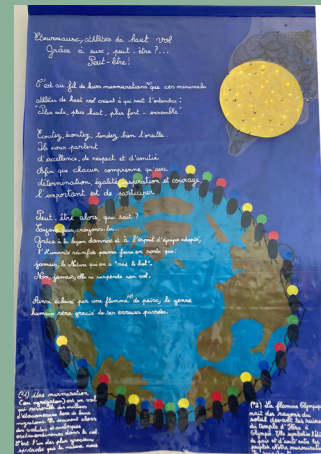 Étourneaux, athlètes de haut vol
Grâce à eux, peut-être ?...
Peut-être !
C'est au fil de leurs murmurations que ces minuscules
athlètes de haut vol crient à qui veut l'entendre :
"Plus vite, plus haut, plus fort - ensemble"
Écoutez, écoutez, tendez bien l'oreille
Ils nous parlent
d'excellence, de respect et d'amitié
Afin que chacun comprenne qu'avec
détermination, égalité, inspiration et courage
l'important est de participer
Peut-être alors, qui sait ?
Soyons fous, croyons-les...
Grâce à la leçon donnée et à l'esprit d'équipe adopté,
l'Humanité pourra faire en sorte que
jamais, la Nature
Non, jamais, elle ne suspende son vol.
Ainsi éclairé par une flamme de paix, le genre
humain sera gracié de ses erreurs passées.
(*1) Une murmuration
(ou agrégation) est un vol
qui rassemble des milliers
d'étourneaux lors de leur
migration. Ils
des volutes
extraordinaires dans le ciel
C'est l'un des plus gracieux
spectacles que la nature nous
(*2) La flamme Olympique
naît des rayons du
soleil devant les ruines
du temple d'Héra à
Olympie. Elle symbolise l'idée
de paix et d'amitié entre les
peuples